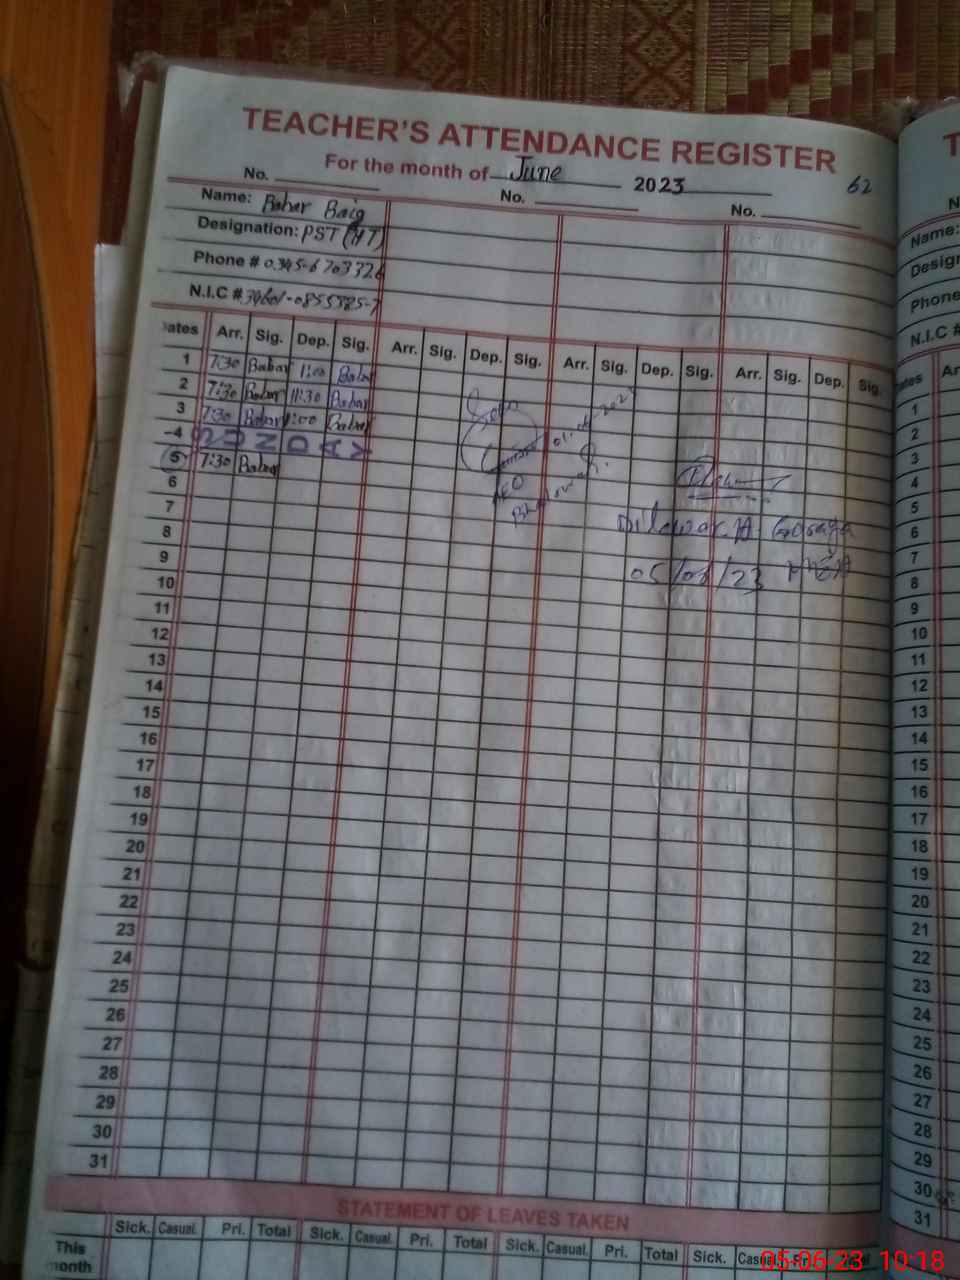 TEACHER'S ATTENDANCE REGISTER
For the month of June 2023
62
No. No. No.
Name: Babar Baig
Designation: PST (HT)
Phone # 0345-6703326
N.I.C #
Dates Arr. Sig. Dep. Sig. Arr. Sig. Dep. Sig. Arr. Sig. Dep. Sig. Arr. Sig. Dep. Sig.
1 7:30 Babar 1:00 Babar
2 7:30 Babar 11:30 Babar
3 7:30 Babar 1:00 Babar
4 SUNDAY
5 7:30 Babar
6
7
8
9
10
11
12
13
14
15
16
17
18
19
20
21
22
23
24
25
26
27
28
29
30
31
Seen
01-06-2023
AEO
05/06/23
STATEMENT OF LEAVES TAKEN
Sick. Casual. Pri. Total Sick. Casual. Pri. Total Sick. Casual. Pri. Total Sick. Casual. Pri.
This month
T
N
Name:
Design
Phone
N.I.C #
ates Ar
1
2
3
4
5
6
7
8
9
10
11
12
13
14
15
16
17
18
19
20
21
22
23
24
25
26
27
28
29
30
31
05-06-23 10:18